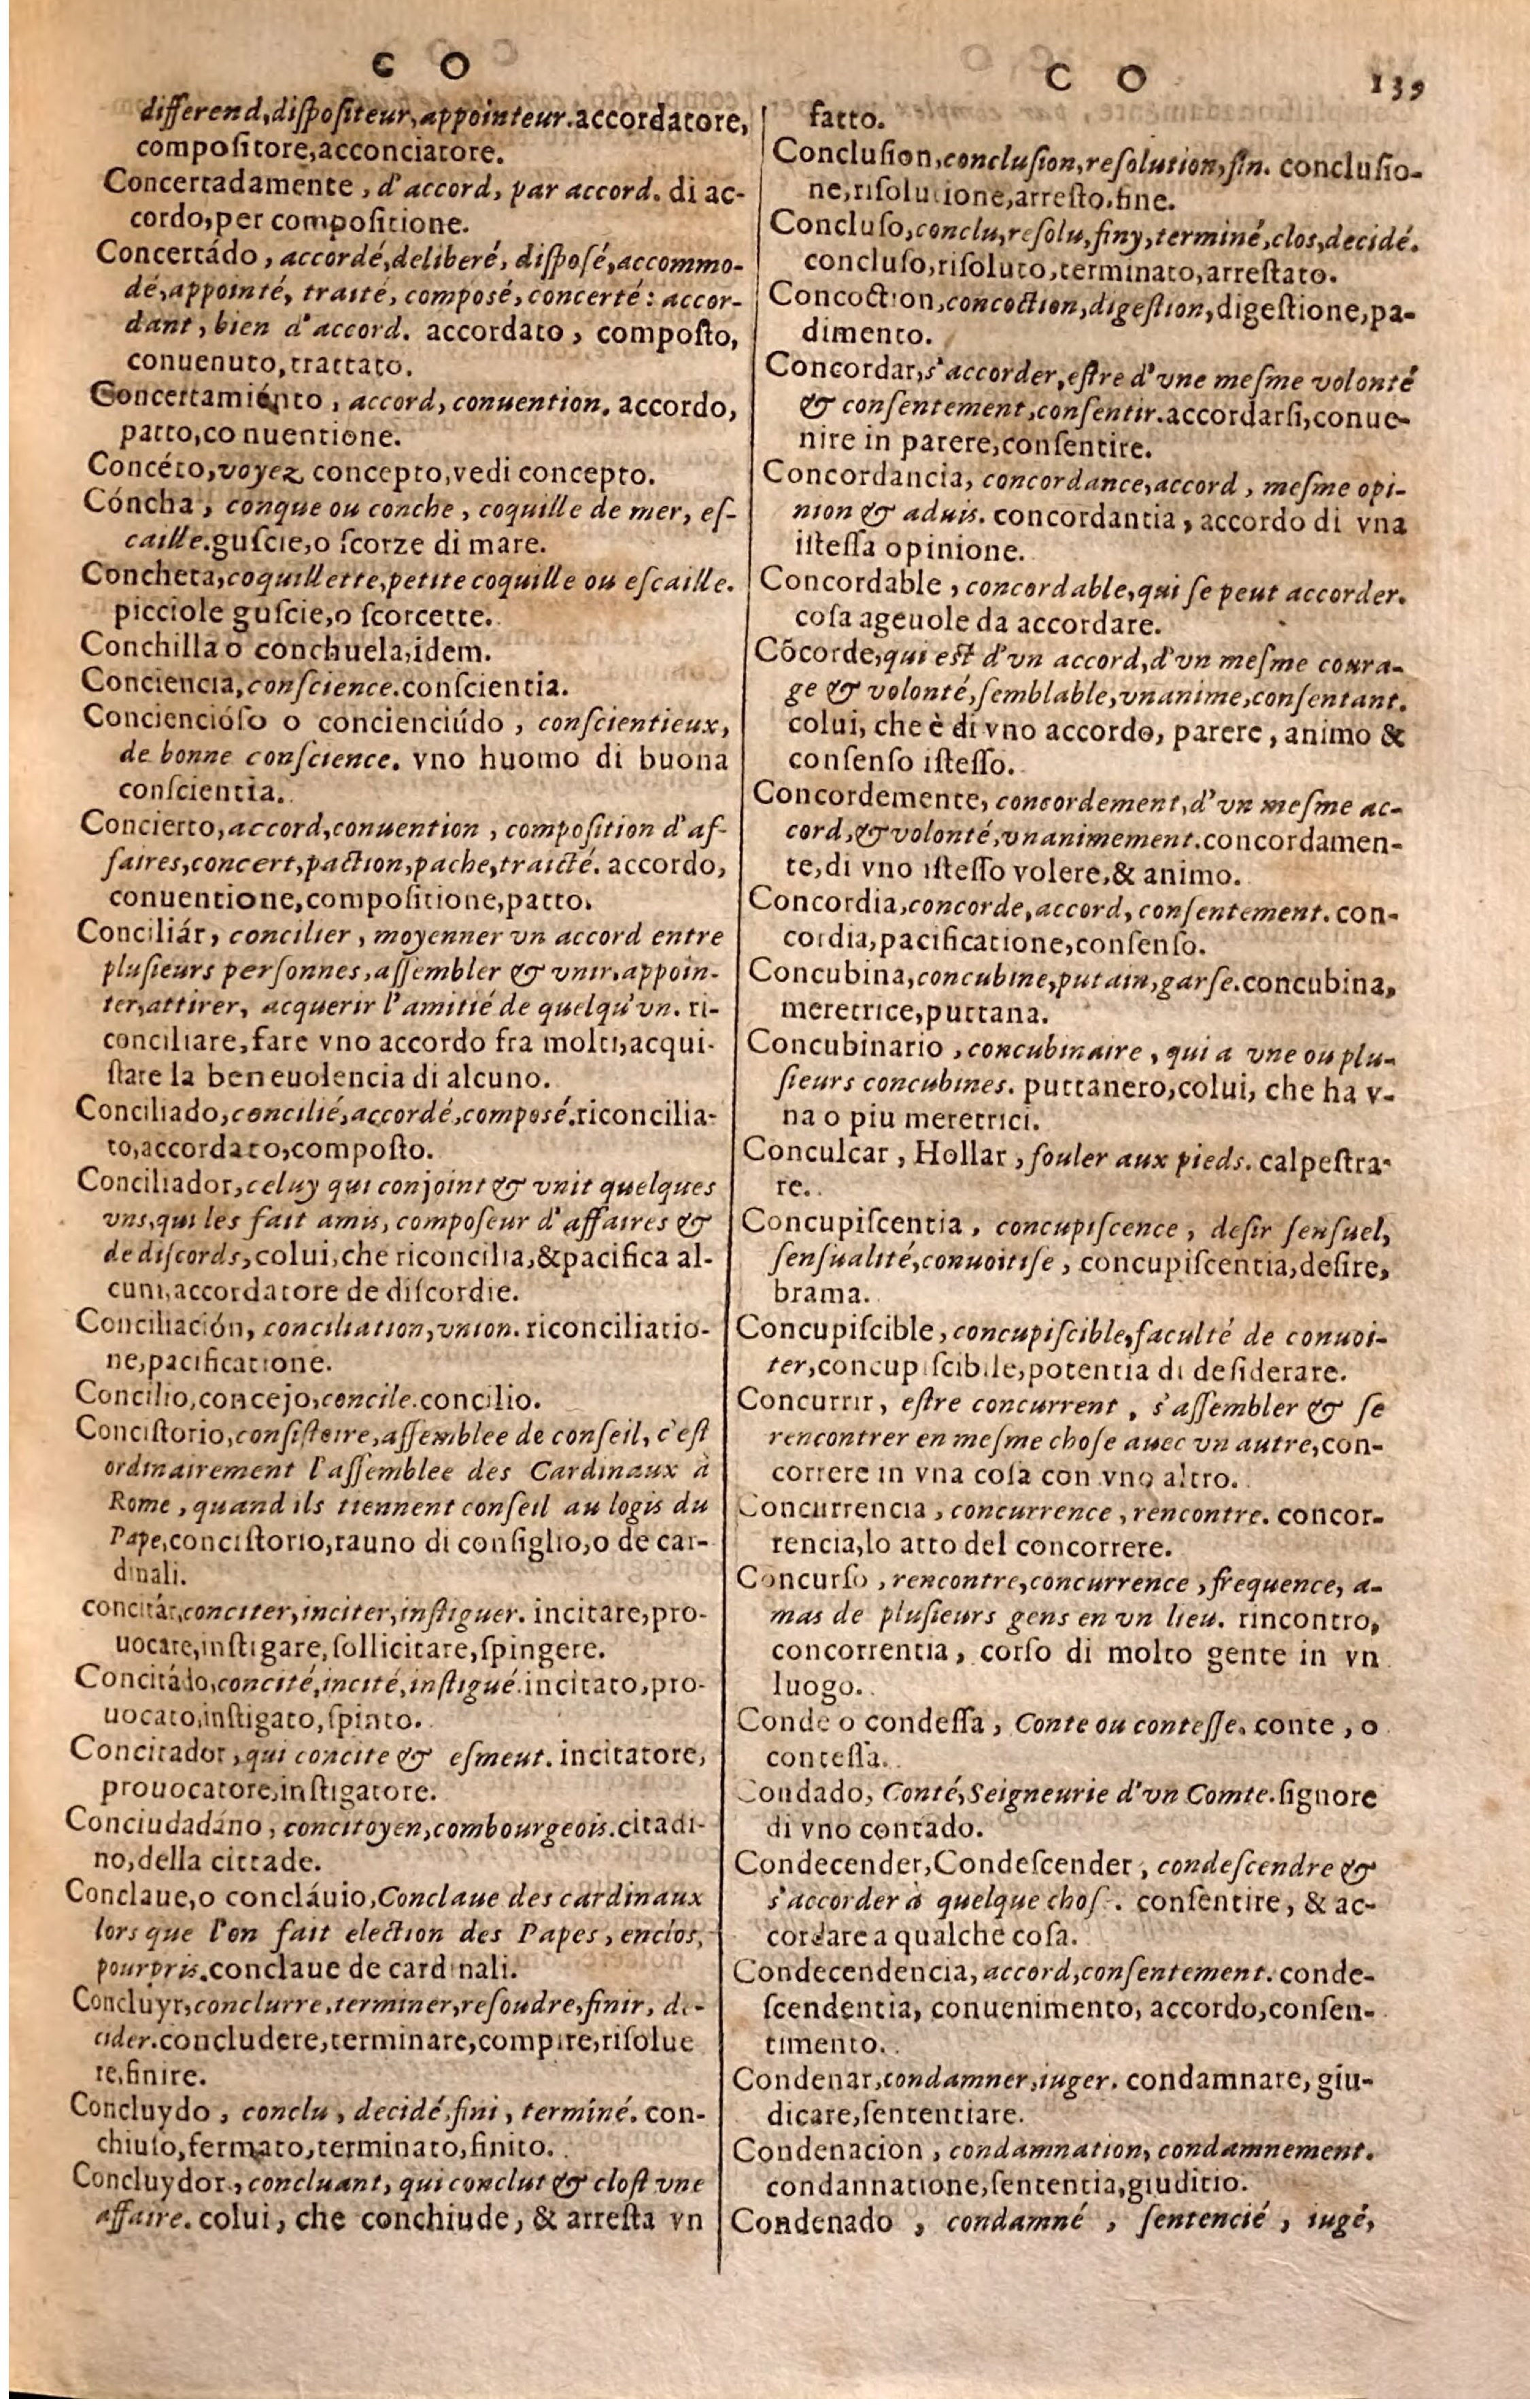 C O
differend,diſpoſiteur,appointeur.accordatore,
compoſitore,acconciatore.
Concertadamente , d'accord, par accord. di ac-
cordo,per compoſitione.
Concertádo , accordé,deliberé, diſpoſé,accommo-
dé,appointé, traité, compoſé, concerté: accor-
dant, bien d'accord. accordato , compoſto,
conuenuto,trattato.
Concertamiénto , accord, conuention. accordo,
patto,co nuentione.
Concéto,voyez concepto,vedi concepto.
Cóncha , conque ou conche , coquille de mer, eſ-
caille.guſcie,o ſcorze di mare.
Concheta,coquillette,petite coquille ou eſcaille.
picciole guſcie,o ſcorcette.
Conchilla o conchuela,idem.
Conciencia,conſcience.conſcientia.
Conciencióſo o concienciúdo , conſcientieux,
de bonne conſcience. vno huomo di buona
conſcientia.
Concierto,accord,conuention , compoſition d'af-
faires,concert,paction,pache,traicté. accordo,
conuentione,compoſitione,patto.
Conciliár, concilier , moyenner vn accord entre
pluſieurs perſonnes,aſſembler & vnir,appoin-
ter,attirer, acquerir l'amitié de quelqu'vn. ri-
conciliare,fare vno accordo fra molti,acqui-
ſtare la beneuolencia di alcuno.
Conciliado,concilié,accordé,compoſé.riconcilia-
to,accordato,compoſto.
Conciliador,celuy qui conjoint & vnit quelques
vns,qui les fait amis, compoſeur d'affaires &
de diſcords,colui,che riconcilia,&pacifica al-
cuni,accordatore de diſcordie.
Conciliación, conciliation,vnion. riconciliatio-
ne,pacificatione.
Concilio,concejo,concile.concilio.
Conciſtorio,conſiſtoire,aſſemblee de conſeil, c'eſt
ordinairement l'aſſemblee des Cardinaux à
Rome , quand ils tiennent conſeil au logis du
Pape,conciſtorio,rauno di conſiglio,o de car-
dinali.
concitár,conciter,inciter,inſtiguer. incitare,pro-
uocare,inſtigare,ſollicitare,ſpingere.
Concitádo,concité,incité,inſtigué.incitato,pro-
uocato,inſtigato,ſpinto.
Concitador,qui concite & eſmeut. incitatore,
prouocatore,inſtigatore.
Conciudadáno , concitoyen,combourgeois.citadi-
no,della cittade.
Conclaue,o concláuio,Conclaue des cardinaux
lors que l'on fait election des Papes, enclos,
pourpris.conclaue de cardinali.
Concluyr,conclurre,terminer,reſoudre,finir, de-
cider.concludere,terminare,compire,riſolue
re,finire.
Concluydo , conclu , decidé,fini , terminé. con-
chiuſo,fermato,terminato,finito.
Concluydor , concluant, qui conclut & cloſt vne
affaire. colui, che conchiude, & arreſta vn
C O 139
fatto.
Concluſion,concluſion,reſolution,fin. concluſio-
ne,riſolutione,arreſto,fine.
Concluſo,conclu,reſolu,finy,terminé,clos,decidé.
concluſo,riſoluto,terminato,arreſtato.
Concoction,concoction,digeſtion,digeſtione,pa-
dimento.
Concordar,s'accorder,eſtre d'vne meſme volonté
& conſentement,conſentir.accordarſi,conue-
nire in parere,conſentire.
Concordancia, concordance,accord , meſme opi-
nion & aduis. concordantia, accordo di vna
iſteſſa opinione.
Concordable , concordable,qui ſe peut accorder.
coſa ageuole da accordare.
Cõcorde,qui eſt d'vn accord,d'vn meſme coura-
ge & volonté,ſemblable,vnanime,conſentant.
colui, che è di vno accordo, parere, animo &
conſenſo iſteſſo.
Concordemente, concordement,d'vn meſme ac-
cord,& volonté,vnanimement.concordamen-
te,di vno iſteſſo volere,& animo.
Concordia,concorde,accord, conſentement. con-
cordia,pacificatione,conſenſo.
Concubina,concubine,putain,garſe.concubina,
meretrice,puttana.
Concubinario , concubinaire , qui a vne ou plu-
ſieurs concubines. puttanero,colui, che ha v-
na o piu meretrici.
Conculcar , Hollar , fouler aux pieds. calpeſtra-
re.
Concupiſcentia , concupiſcence , deſir ſenſuel,
ſenſualité,conuoitiſe , concupiſcentia,deſire,
brama.
Concupiſcible,concupiſcible,faculté de conuoi-
ter,concupiſcibile,potentia di deſiderare.
Concurrir, eſtre concurrent , s'aſſembler & ſe
rencontrer en meſme choſe auec vn autre,con-
correre in vna coſa con vno altro.
Concurrencia , concurrence , rencontre. concor-
rencia,lo atto del concorrere.
Concurſo , rencontre,concurrence , frequence, a-
mas de pluſieurs gens en vn lieu. rincontro,
concorrentia, corſo di molto gente in vn
luogo.
Conde o condeſſa , Conte ou conteſſe. conte , o
conteſſa.
Condado, Conté,Seigneurie d'vn Comte.ſignore
di vno contado.
Condecender,Condeſcender, condeſcendre &
s'accorder à quelque choſ . conſentire, & ac-
cordare a qualche coſa.
Condecendencia,accord,conſentement. conde-
ſcendentia, conuenimento, accordo,conſen-
timento.
Condenar,condamner,iuger. condamnare, giu-
dicare,ſententiare.
Condenacion , condamnation, condamnement.
condannatione,ſententia,giuditio.
Condenado , condamné , ſentencié , iugé,